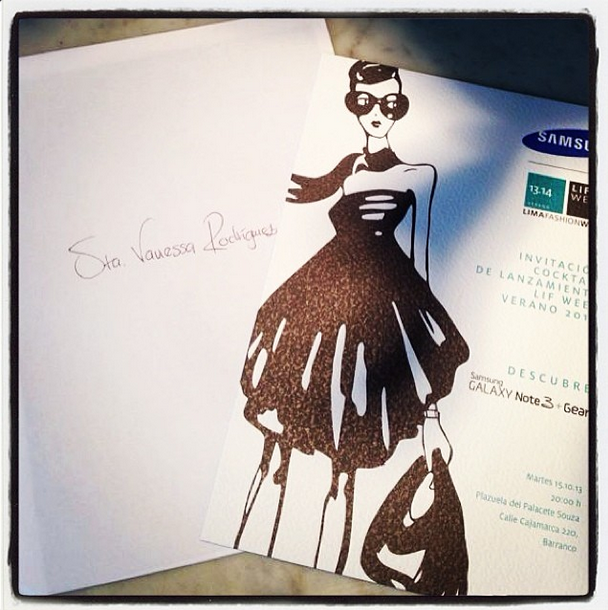 Sta. Vanessa Rodríguez
SAMSU
13.14
LIF
WE
VERANO
LIMAFASHIONW
INVITACIÓ
COCKTA
DE LANZAMIENT
LIF WEE
VERANO 201
DESCUBRE
Samsung
GALAXY Note 3 + Gear
Martes 15.10.13
20:00 h
Plazuela del Palacete Souza
Calle Cajamarca 220,
Barranco